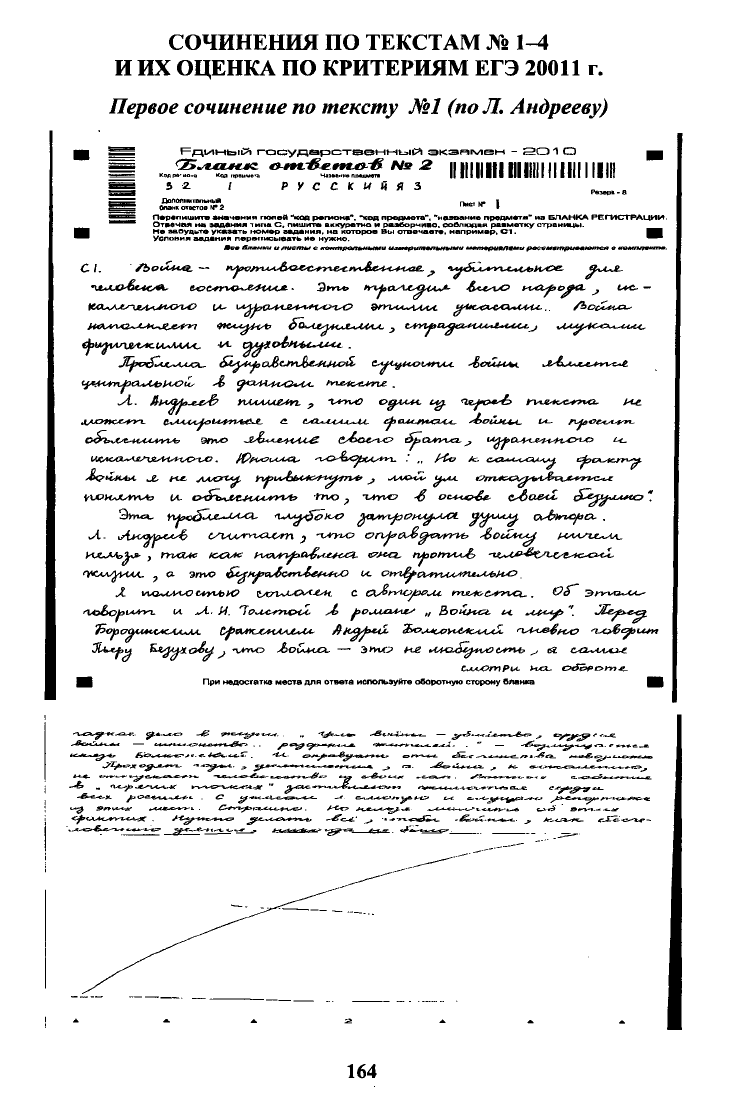 СОЧИНЕНИЯ ПО ТЕКСТАМ № 1–4
И ИХ ОЦЕНКА ПО КРИТЕРИЯМ ЕГЭ 20011 г.
Первое сочинение по тексту №1 (по Л. Андрееву)
Единый государственный экзамен - 2010
Бланк ответов № 2
Код региона Код предмета Название предмета
52 1 РУССКИЙЯЗ
Резерв - 8
Дополнительный
бланк ответов № 2
Лист № 1
Перепишите значения полей "код региона", "код предмета", "название предмета" из БЛАНКА РЕГИСТРАЦИИ.
Отвечая на задания типа С, пишите аккуратно и разборчиво, соблюдая разметку страницы.
Не забудьте указать номер задания, на которое Вы отвечаете, например, С1.
Условия задания переписывать не нужно.
Все бланки и листы с контрольными измерительными материалами рассматриваются в комплекте.
С1. Война — противоестественное, губительное для
человека состояние. Это трагедия всего народа, ис-
калеченного и израненного этими ужасами.. Война
наполняет жизнь болезнями, страданиями, муками
физическими и духовными.
Проблема безнравственной сущности войны является
центральной в данном тексте.
Л. Андреев пишет, что один из героев текста не
может смириться с самим фактом войны и просит
объяснить это явление своего брата, израненного и
искалеченного. Юноша говорит: „Но к самому факту
войны я не могу привыкнуть, мой ум отказывается
понять и объяснить то, что в основе своей безумно".
Эта проблема глубоко затронула душу автора.
Л. Андреев считает, что оправдать войну ничем
нельзя, так как направлена она против человеческой
жизни, а это безнравственно и отвратительно.
Я полностью согласен с автором текста. Об этом
говорит и Л.Н. Толстой в романе „Война и мир". Перед
Бородинским сражением Андрей Болконский гневно говорит
Пьеру Безухову, что война — это не любезность, а самое
смотри на обороте
При недостатке места для ответа используйте оборотную сторону бланка
гадкое дело в жизни. „Цель войны — убийство, орудия
войны — шпионство.. разорение жителей.." — возмущается
князь Болконский. И оправдать эти бесчинства невозможно
Проходят годы, десятилетия, а война, к сожалению,
не отпускает человечество из своих лап. Военные события
в „горячих точках" заставляют сердца
всех россиян. С ужасом я смотрю и слушаю репортажи
из этих мест. Страшно. Но нельзя молчать об этих
фактах. Нужно делать всё, чтобы войны, как бесче-
ловечного деяния, никогда не было.
2
164